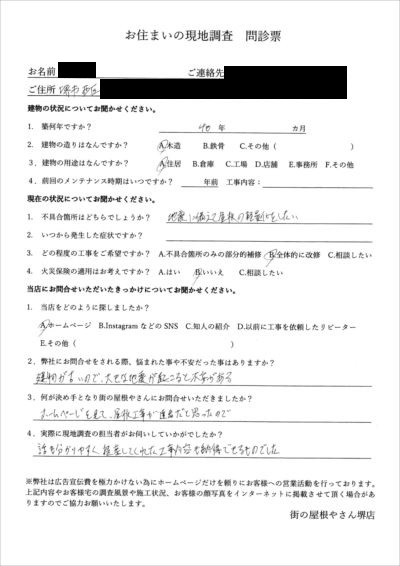 お住まいの現地調査　問診票
お名前　ご連絡先
ご住所 堺市西区
建物の状況についてお聞かせください。
1．築何年ですか？　40 年　カ月
2．建物の造りはなんですか？　A.木造　B.鉄骨　C.その他（　）
3．建物の用途はなんですか？　A.住居　B.倉庫　C.工場　D.店舗　E.事務所　F.その他
4．前回のメンテナンス時期はいつですか？　年前　工事内容：
現在の状況についてお聞かせください。
1．不具合箇所はどちらでしょうか？　地震に備えて屋根の軽量化をしたい
2．いつから発生した症状ですか？
3．どの程度の工事をご希望ですか？ A.不具合箇所のみの部分的補修　B.全体的に改修　C.相談したい
4．火災保険の適用はお考えですか？ A.はい　B.いいえ　C.相談したい
当店にお問合せいただいたきっかけについてお聞かせください。
1．当店をどのように探しましたか？
A.ホームページ　B.Instagram などの SNS　C.知人の紹介　D.以前に工事を依頼したリピーター
E.その他（　）
2．弊社にお問合せをされる際、悩まれた事や不安だった事はありますか？
建物が古いので、大きな地震が起こると不安がある
3．何が決め手となり街の屋根やさんにお問合せいただきましたか？
ホームページを見て、屋根工事が得意だと思ったので
4．実際に現地調査の担当者がお伺いしていかがでしたか？
話も分かりやすく提案してくれた工事内容も納得できるものでした
※弊社は広告宣伝費を極力かけない為にホームページだけを頼りにお客様への営業活動を行っております。
上記内容やお客様宅の調査風景や施工状況、お客様の顔写真をインターネットに掲載させて頂く場合があ
りますのでご協力お願いいたします。
街の屋根やさん堺店